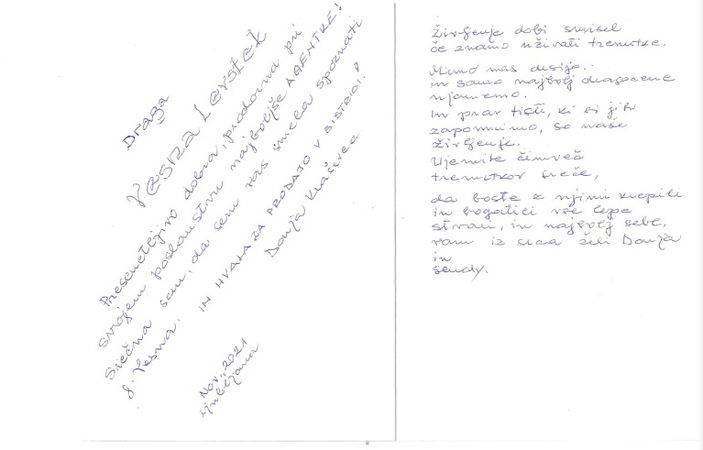 Draga
Vesna Levstek
Presenetljivo dobra, prodorna pri
svojem poslanstvu najboljše AGENTKE!
Srečna sem, da sem vas smela spoznati
g. Vesna. IN HVALA ZA PRODAJO V BISTRICI!
Dunja Kraševec
Nov., 2021
Ljubljana
Življenje dobi smisel
če znamo uživati trenutke.
Mimo nas desijo..
in samo najbolj dragocene
ujamemo.
In prav tisti, ki si jih
zapomnimo, so naše
življenje.
Ujemite čimveč
trenutkov sreče,
da boste z njimi krepili
in bogatili vse lepe
strani, in najbolj sebe,
vam iz srca želi Dunja
in